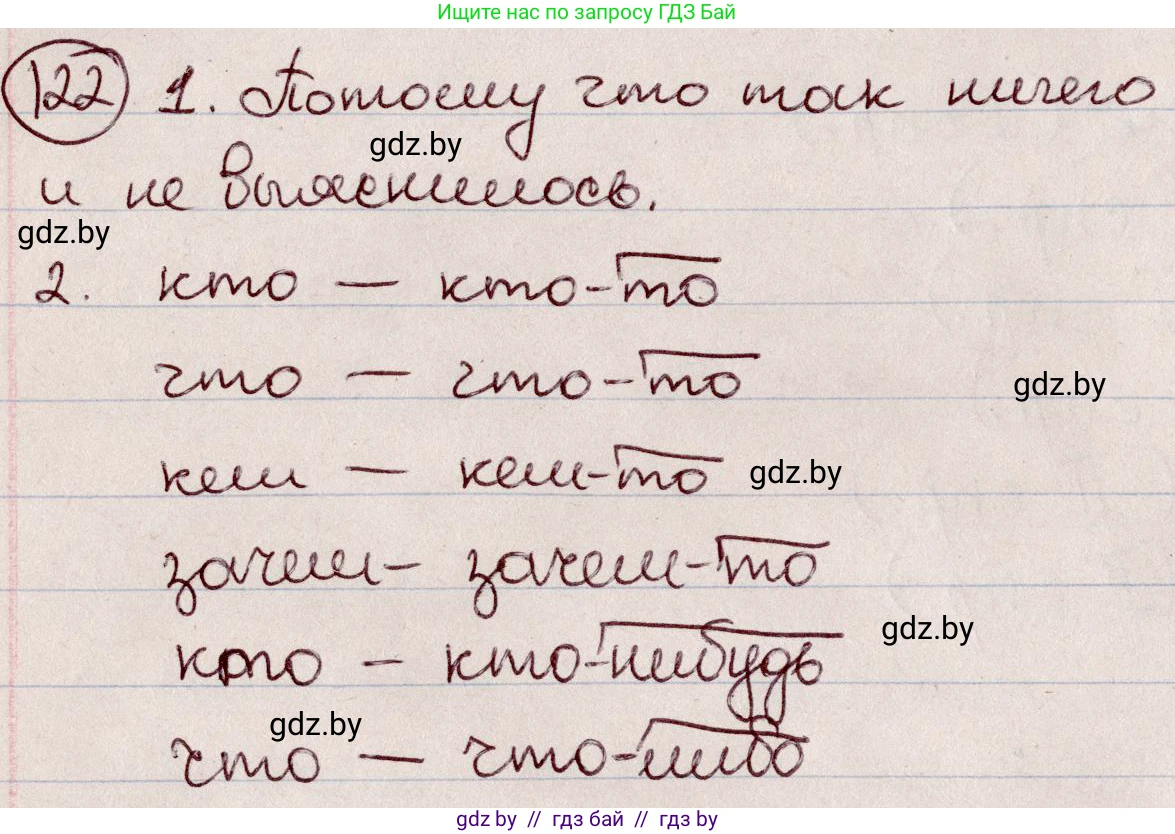 Ищите нас по запросу ГДЗ Бай
122 1. Потому что так ничего
gdz.by
и не выяснилось.
gdz.by
2. кто — кто-то
что — что-то
gdz.by
кем — кем-то
gdz.by
зачем - зачем-то
gdz.by
кого - кто-нибудь
gdz.by
что — что-либо
gdz.by // гдз бай // гдз by